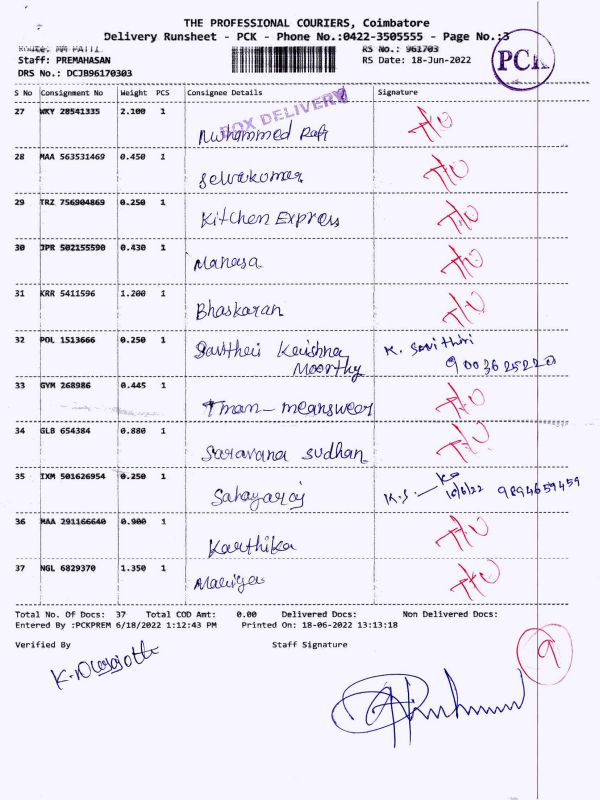 THE PROFESSIONAL COURIERS, Coimbatore
Delivery Runsheet - PCK - Phone No.:0422-3505555 - Page No.:3
Route: MM PATTI RS No.: 961703
Staff: PREMAHASAN RS Date: 18-Jun-2022
DRS No.: DCJB96170303
PCK
S No Consignment No Weight PCS Consignee Details Signature
BOX DELIVERY
27 WKY 28541335 2.100 1 Muhammed Rafi
28 MAA 563531469 0.450 1 Selvakumar
29 TRZ 756904869 0.250 1 Kitchen Express
30 JPR 502155590 0.430 1 Manasa
31 KRR 5411596 1.200 1 Bhaskaran
32 POL 1513666 0.250 1 Krishna K. Savithiri
Moorthy
33 GYM 268986 0.445 1
34 GLB 654384 0.880 1 Saravana Sudhan
35 IXM 501626954 0.250 1 Sahayaraj K.S. 9894659459
36 MAA 291166640 0.900 1 Karthika
37 NGL 6829370 1.350 1 Mariya
Total No. Of Docs: 37 Total COD Amt: 0.00 Delivered Docs: Non Delivered Docs:
Entered By :PCKPREM 6/18/2022 1:12:43 PM Printed On: 18-06-2022 13:13:18
Verified By Staff Signature
9